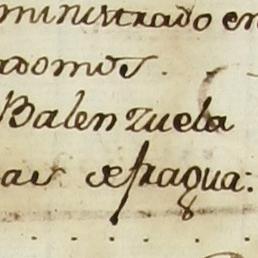 ministrado en
adomos.
Balenzuela
as de fragua: